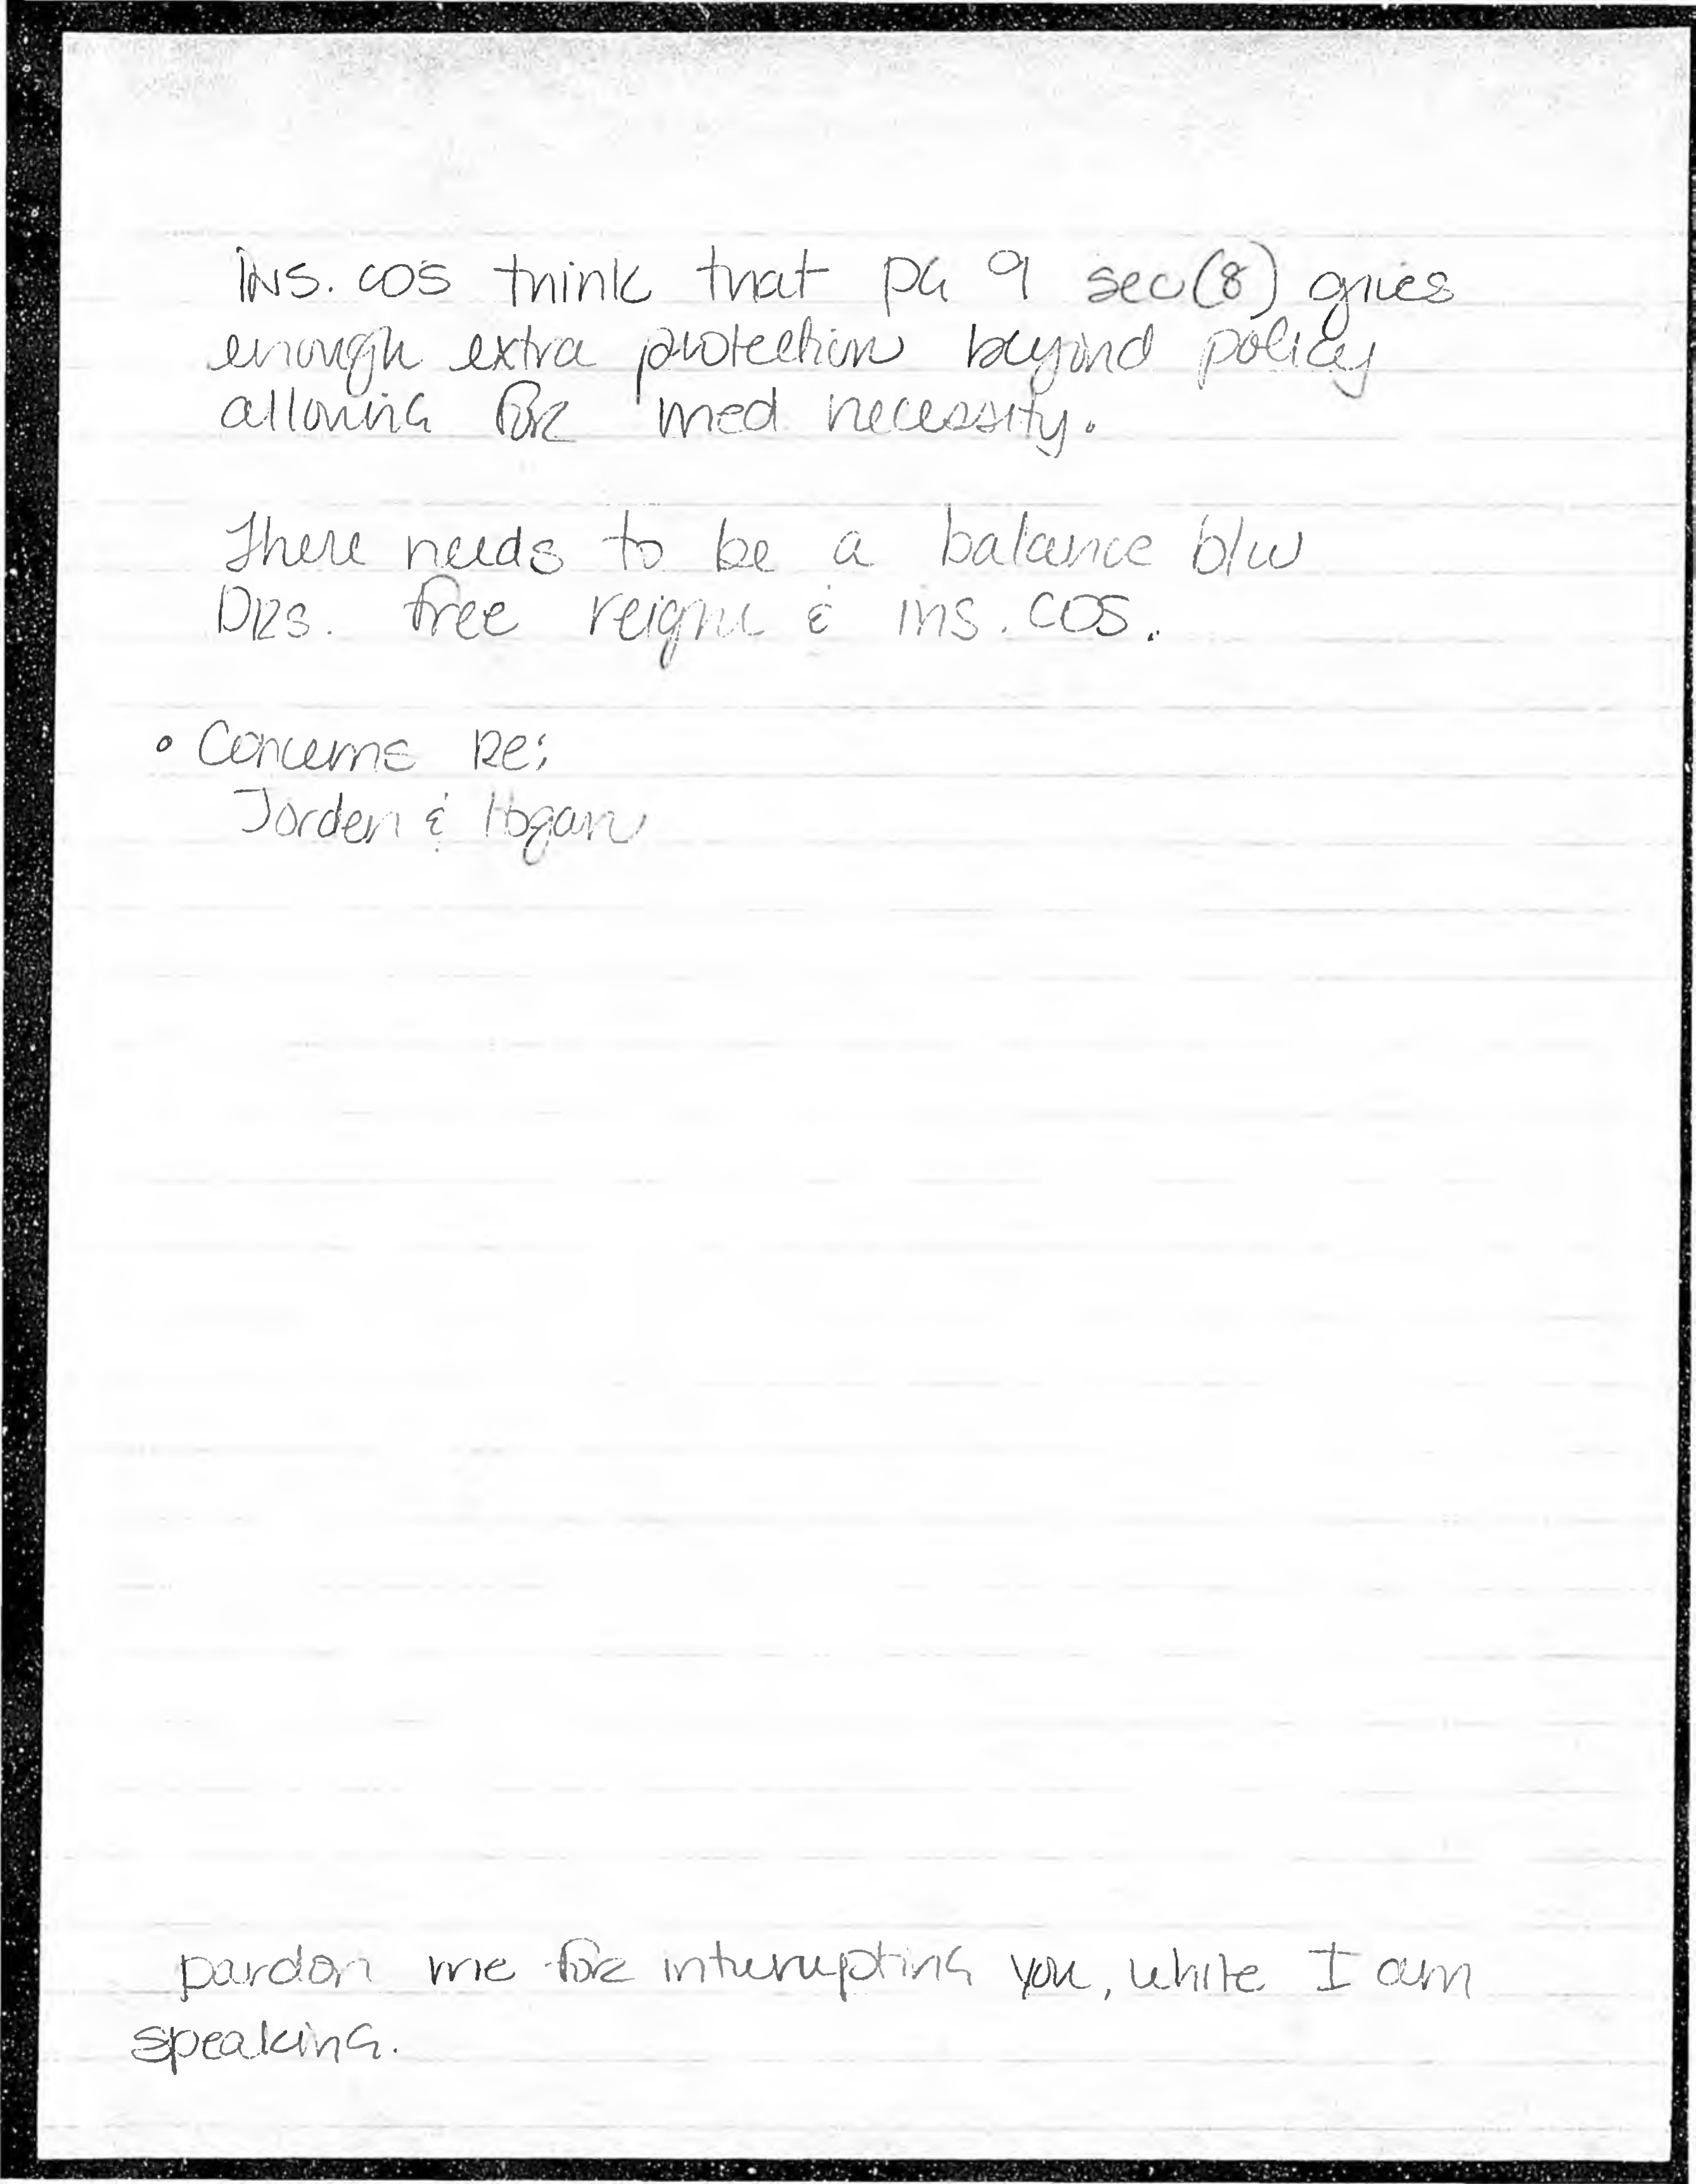 INS. COS think that PG 9 sec (8) gives
enough extra protection beyond policy
allowing for med necessity.
There needs to be a balance b/w
DRS. free reign & ins. COS.
• Concerns Re:
Jorden & Hogan
pardon me for interupting you, while I am
speaking.